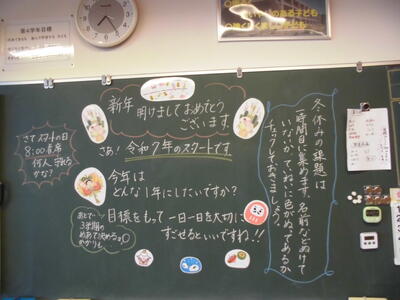 第6学年目標
新年
明けましておめでとう
ございます。
さあ！令和7年のスタートです
今年は
どんな1年にしたいですか？
目標をもって一日一日を大切に
すごせるといいですね!!
さてスタートの日
8:00着席
何人
かな？
あとで…
3学期の
めあて決めるよ。
冬休みの課題は
一時間目に集めます。名前などぬけて
いないか、ていねいに色がぬってあるか
チェックしておきましょう。